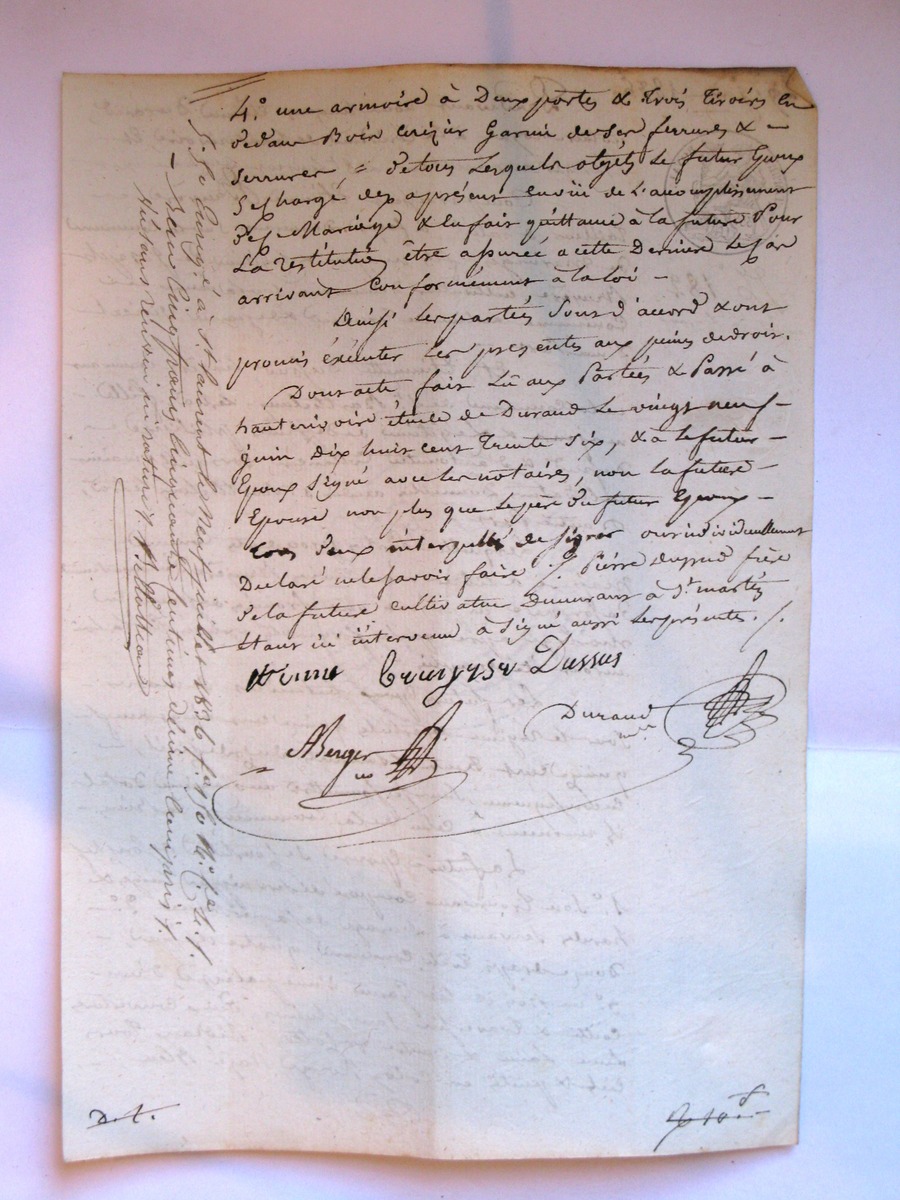 4.° une armoire à Deux portes & trois tiroirs en
dedans Bois cerizier Garnie de ses ferrures & -
serrures, = de tous Lesquels objéts Le futur Epoux
se charge dex aprésent en vüe de L'acomplissement
des Mariage & en fait quittance à la future Pour
La restitution être assurée a cette Derniere le cas
arrivant Conformément à la loi -
Ainsi Les parties sont d'accord & ont
promis éxécuter les presentes aux peines de droit.
Dont acte fait Lû aux Parties & Passé à
hauterivoire étude de Durand Le vingt neuf -
juin Dix huit cent trente six, & à le futur -
Epoux signé avec les notaires, non la future -
Epouse non plus que le père du futur Epoux -
Lous deux interpellés de signer ont individuellement
Declaré ne le savoir faire ./. Pierre dussud frère
de la future cultivateur Demeurant à St. martin
Etant ici intervenu à signé aussi les présentes. /.
Dussus
Durand
ABerger
S.t Laurent le Neuf juillet 1836 f.°
cinq francs cinquante centimes dixime compris ./.
D.t.